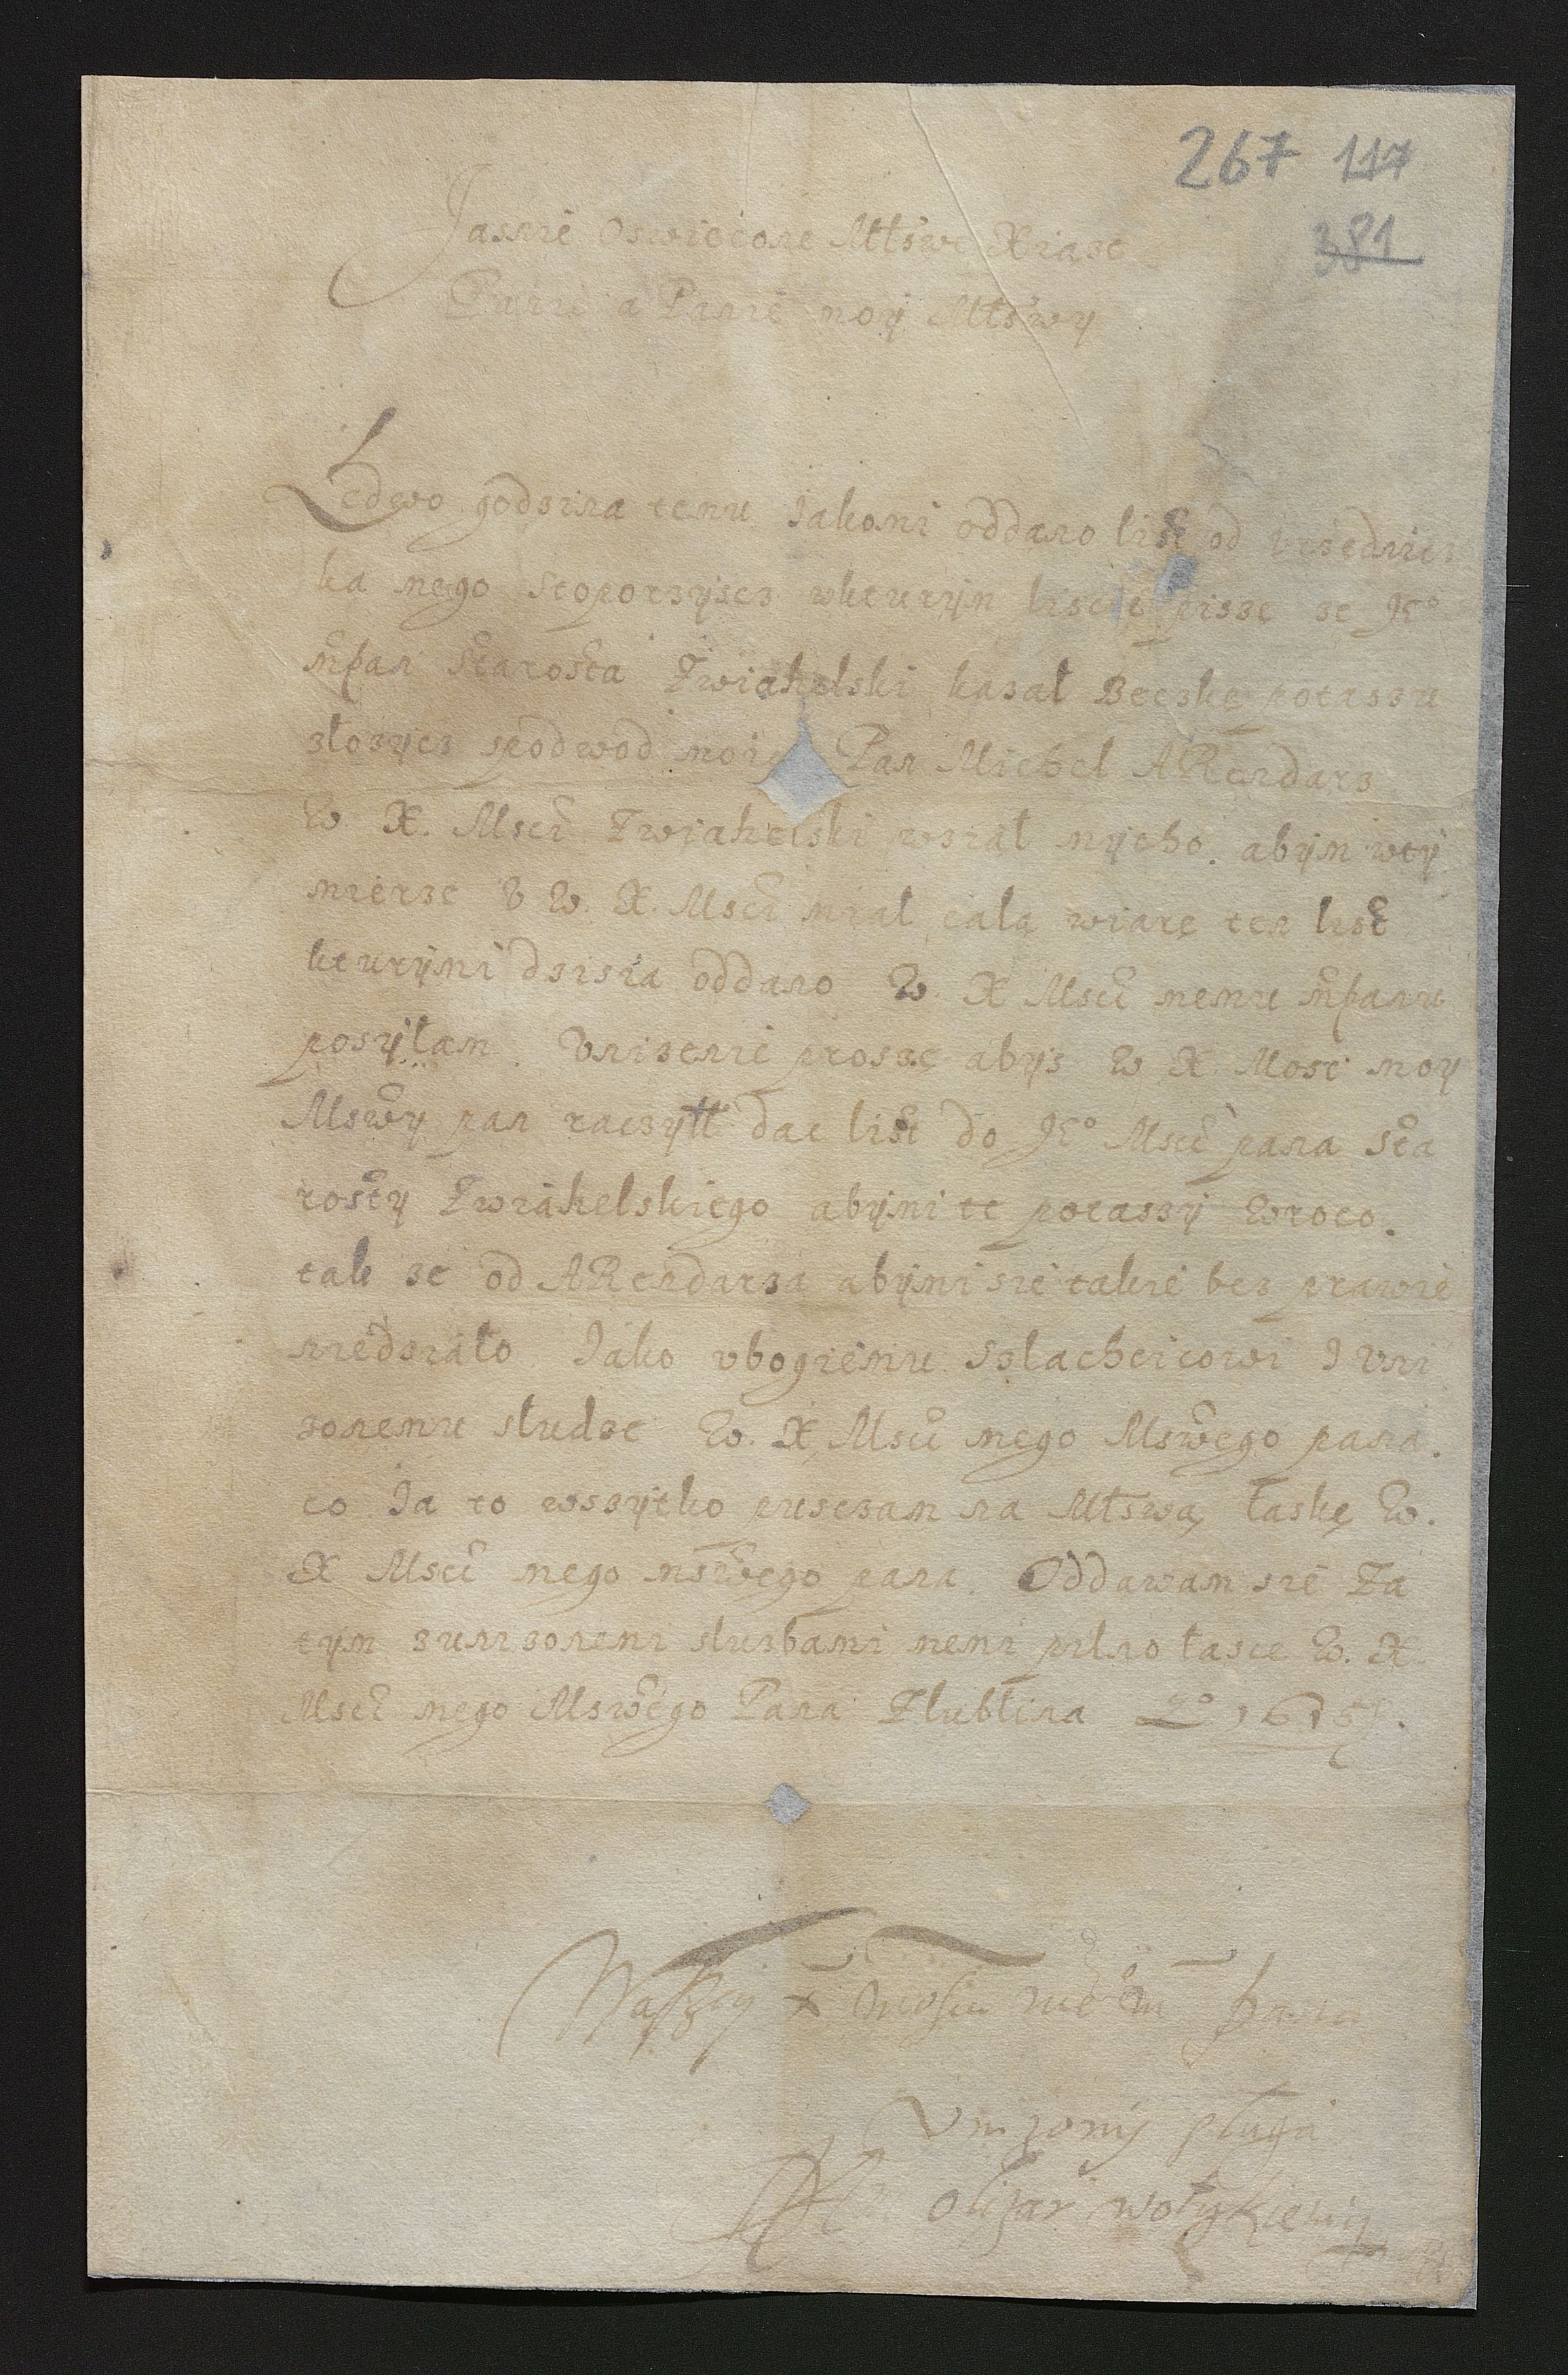 267 117
381
Jasnie Oswiecone Mtśwe Xiaze
Panie a Panie moy Mtśwy
Ledwo godzina temu Jakomi oddano list od vrzednic
ka mego stoporzyscz wkturym liscie pisze ze Je°
mpan starosta Zwiahelski kazał Beczkę potaszu
złozycz spodwod moic Pan Michel ARendarz
W X. Msci Zwiahelski wział nycho. abym wty
mierze V W. X. Msci miał całą wiarę ten list
kturymi dzisia oddano W. X Msci memu mpanu
posyłam. Vnizenie proszę abys W X. Mosc moy
Mswy pan raczytł dac list do Je° Msci pana sta
rosty Zwiahelskiego abymi te potaszy wroco.
tak ze od ARendarza abymi sie takie bez prawie
niedziało. Jako vbogiemu szlachcicowi I vni
zonemu słudze W. X, Msci mego Mswego pana.
co Ja to wszytko pusczam na Mtswą łaskę W.
X Msci mego mswego pana. Oddawam sie Za
tym zunizonemi słuzbami memi pilno łasce W. X.
Msci mego Mswego Pana Zlublina
Waszey X Mosci me° m pana
Vnizony sługa
olizar wołczkiewicz